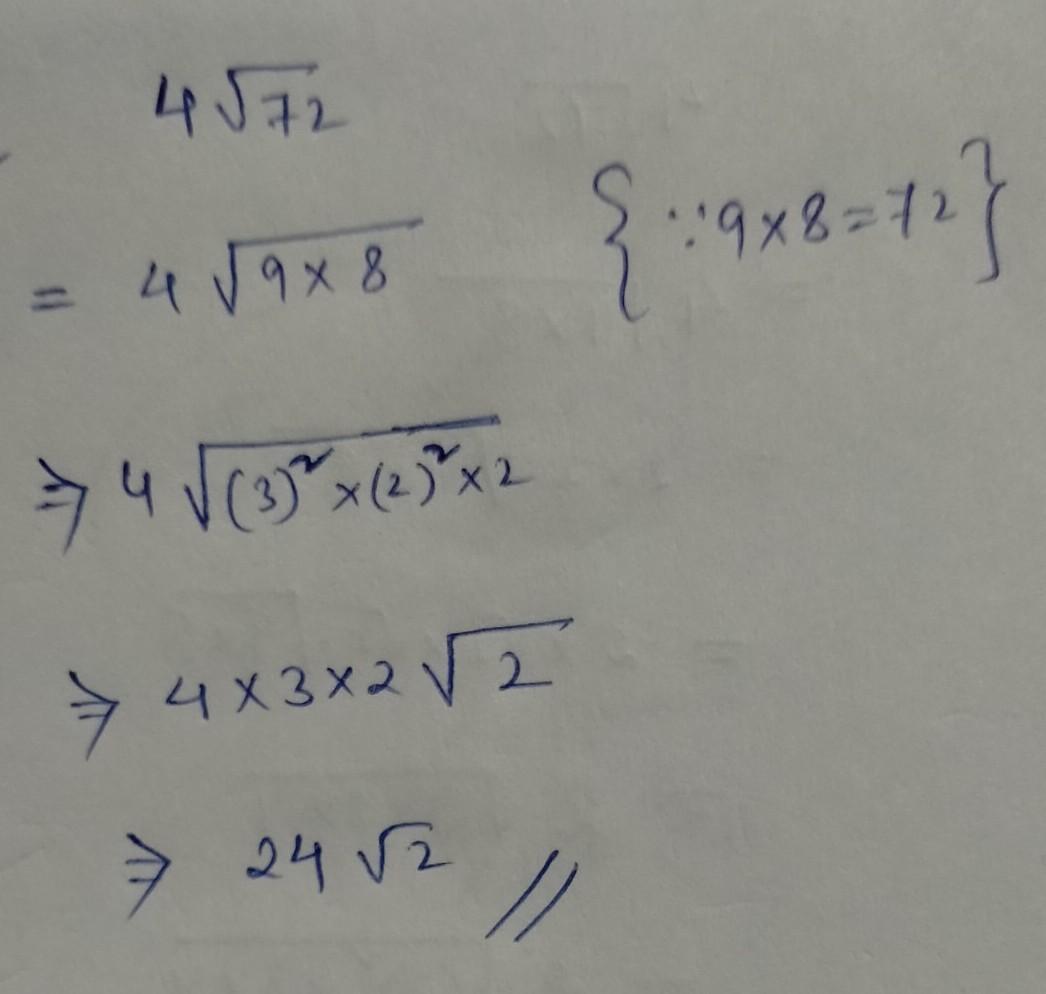 4√72
= 4√9×8 {∵9×8=72}
⇒ 4√(3)²×(2)²×2
⇒ 4×3×2√2
⇒ 24√2 //